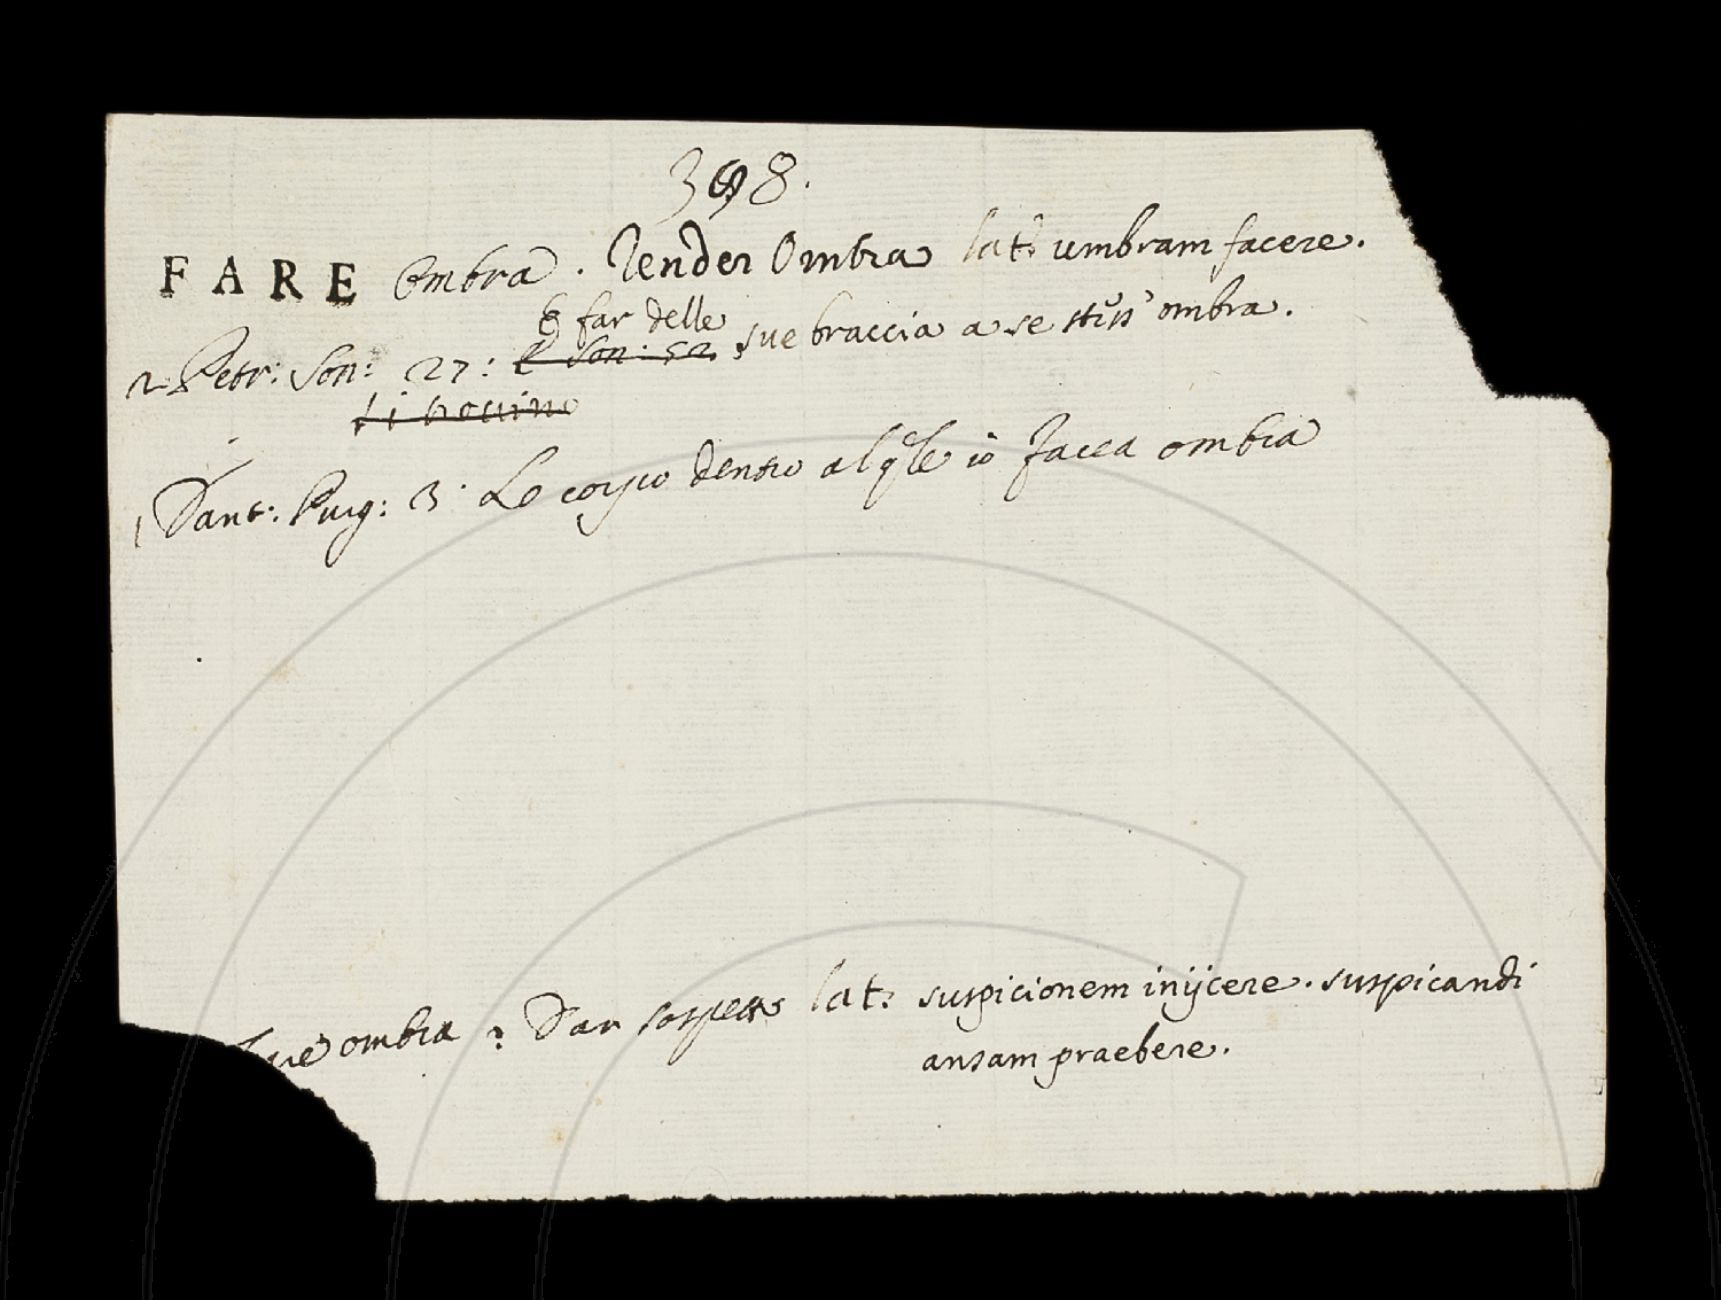 398.
FARE Ombra. Render Ombra lat: umbram facere.
E far delle
2 Petr: Son: 27: E Son: 52. sue braccia a se stess' ombra.
Dant: Purg: 3. Lo corpo dentro al qle io facea ombra
ombra : Dar sospetto lat: suspicionem inijcere. suspicandi
ansam praebere.